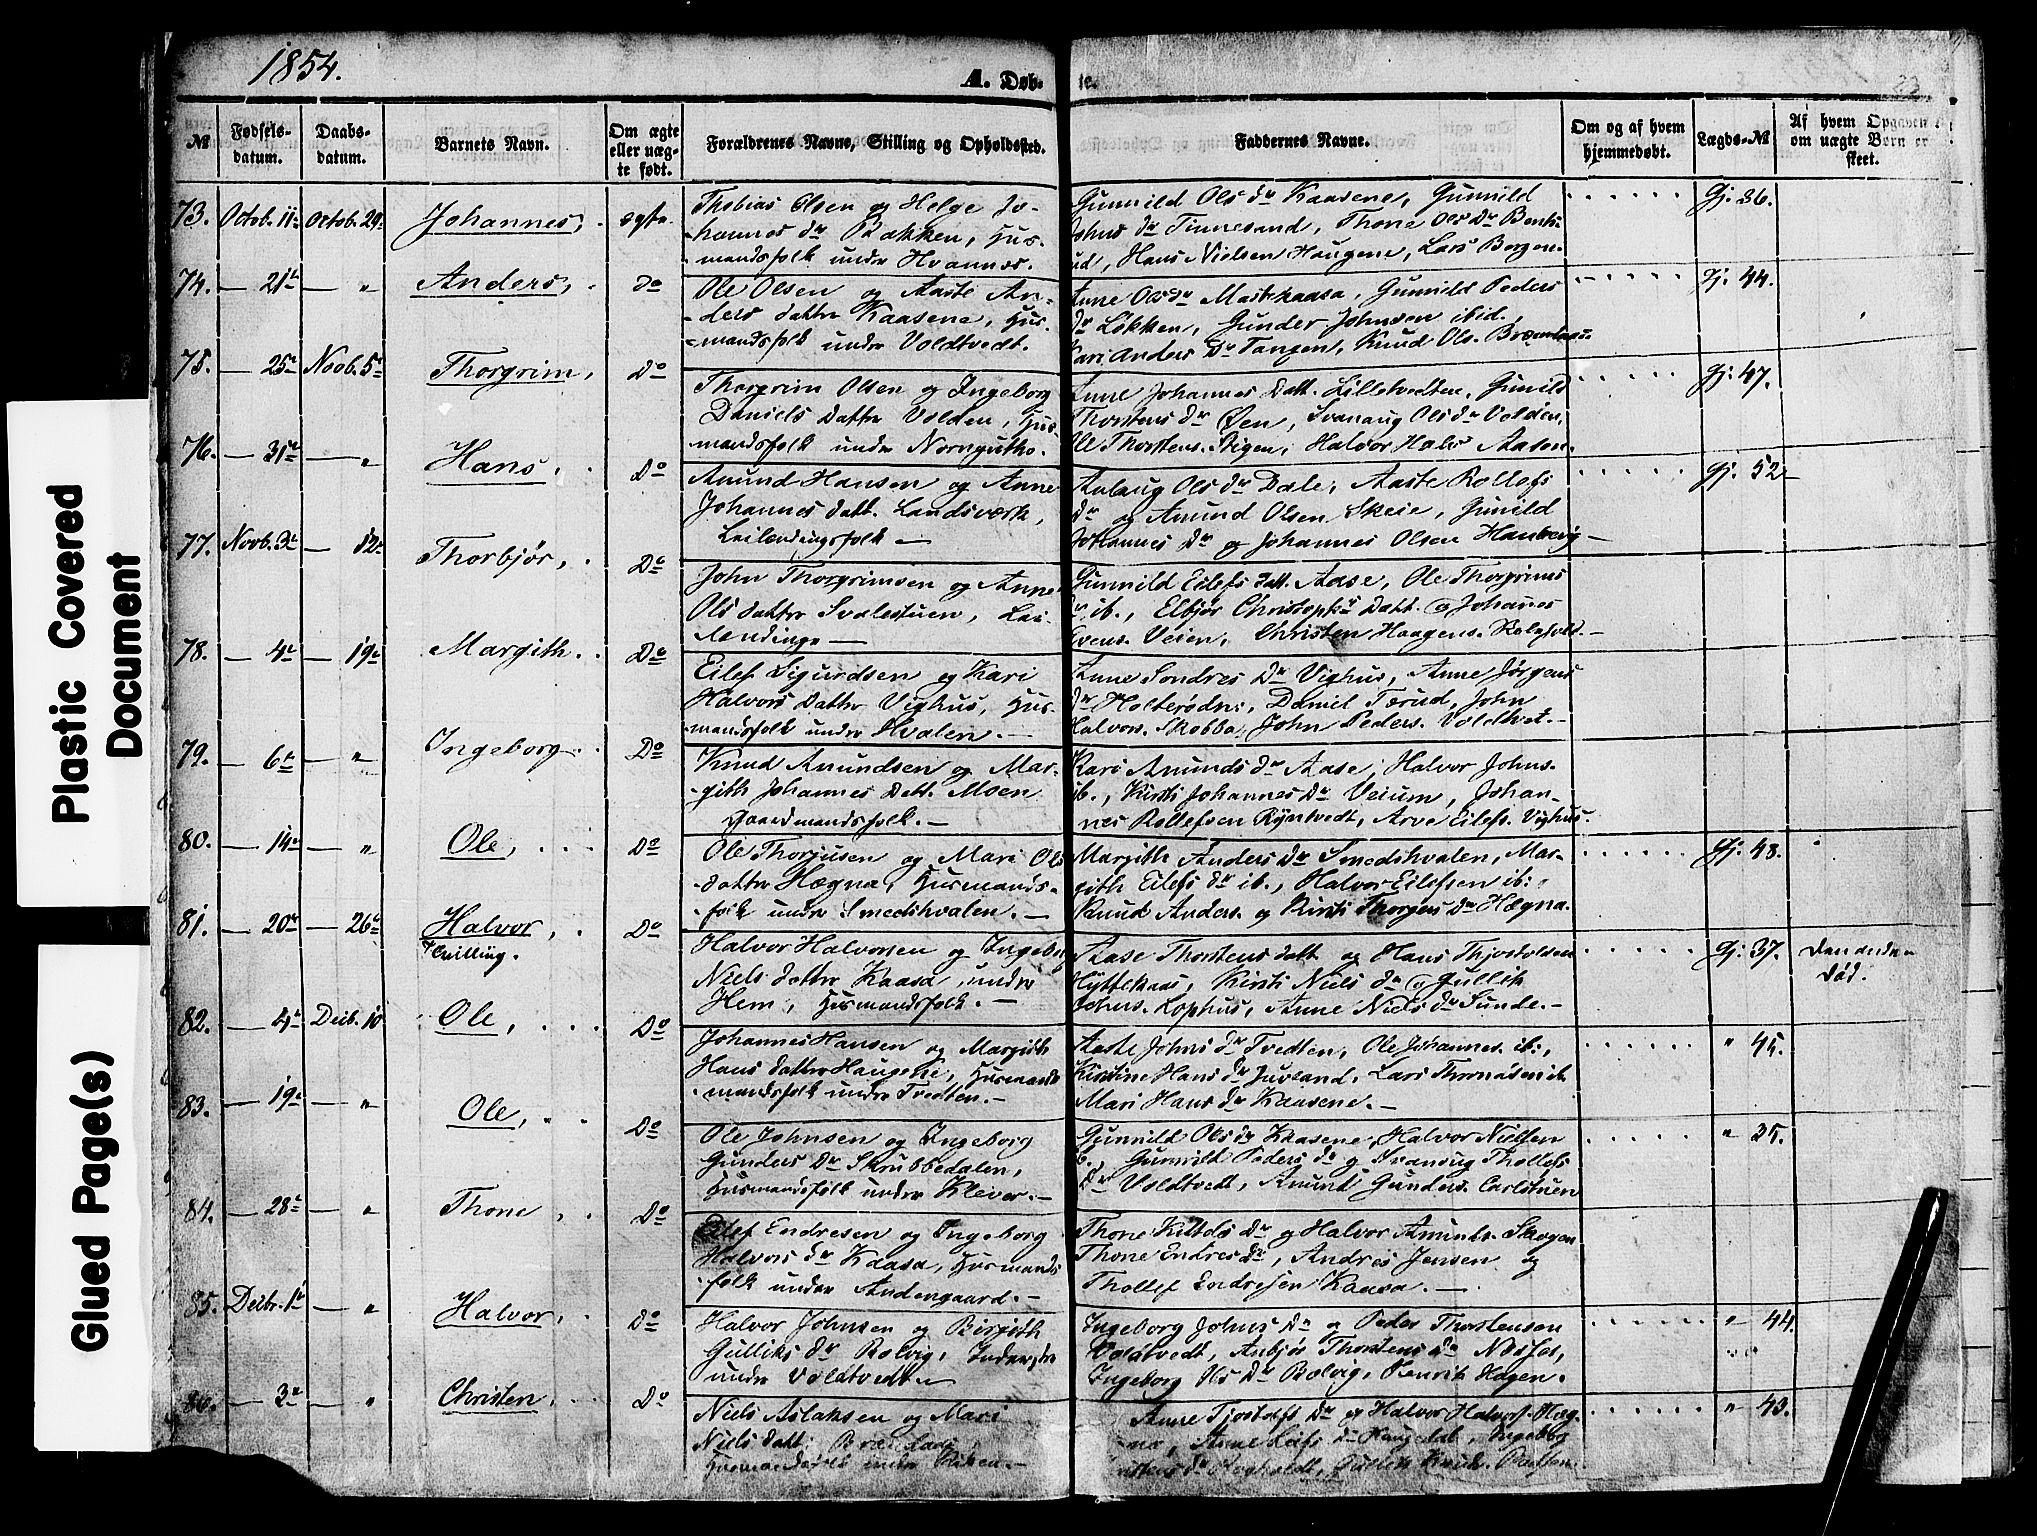 1854.
A. Døb-
te.
Plastic Covered
Document
Glued Page(s)
№
Fødsels-
datum.
Daabs-
datum.
Barnets Navn.
Om ægte
eller uæg-
te født.
Forældrenes Navne, Stilling og Opholdssted.
Faddernes Navne.
Om og af hvem
hjemmedøbt.
Lægds-№
Af hvem Opgaven
om uægte Børn er
skeet.
73. Octob. 11te Octob. 29de Johannes, ægte.
Thobias Olsen og Helge Jo-
hannes Dr Bakken, Hus-
mandsfolk under Hvannes.
Gunnild Ols dr Kaasene, Gunnild
Johns dr Tinnesand, Thone Ols Dr Benk-
rud, Hans Nielsen Haugene, Lars Borgen.
Gj. 36.
74. — 21de " Anders, Do
Ole Olsen og Aaste An-
ders datter Kaasene, Hus-
mandsfolk under Voldtvedt.
Anne Olsdr Mastekaasa, Gunnild Peders
dr Løkken, Gunder Johnsen ibid.
Kari Anders Dr Tangen, Knud Ols.
Gj. 44.
75. — 25de Novb. 5te Thorgrim, Do
Thorgrim Olsen og Ingeborg
Daniels datter Volden, Hus-
mandsfolk under
Anne Johannes Datt. Lilletvedten, Gunild
Thorstens dr Øen, Svanaug Ols dr Volden,
Ole Thorstens. Stigen, Halvor Halv Aasen.
Gj. 47.
76. — 31te — " Hans, Do
Amund Hansen og Anne
Johannes datt. Landsværk,
Leilændingsfolk —
Aslaug Ols dr Dale, Aaste Rollefs
dr og Amund Olsen Skeie, Gunild
Johannes Dr og Johannes Olsen Hanbevig —
Gj. 52
77. Novb. 3de — 12te Thorbjør, Do
John Thorgrimsen og Anne
Ols datter Svalestuen, Lei-
lændinge —
Gunnild Eilefs datt. Aase, Ole Thorgrims
ib., Elbjør Christophrs Datt. og Johanes
Evens. Veien, Christen Haagens. —
78. — 4de — 19de Margith. Do
Eilef Sigurdsen og Kari
Halvors datter Vighus, Hus-
mandsfolk under Hvalen. —
Anne Sondres Dr Vighus, Anne Jørgens
dr Holterødn, Daniel Tørud, John
Halvors. Skobba, John Peders. Voldtvet. —
79. — 6te — " Ingeborg. Do
Knud Amundsen og Mar-
gith Johannes datt. Moen
Gaardmandsfolk. —
Kari Amunds dr Aase, Halvor Johns.
ib., Kirsti Johannes Dr Veium, Johan-
nes Rollefsen Ryntvedt, Arve Eilefs. Vighus
80. — 14de — " Ole, Do
Ole Thorjusen og Mari Ols
datter Hægna, Husmands-
folk under Smedshvalen. —
Margith Anders dr Smedshvalen, Mar-
gith Eilefs dr ib., Halvor Eilefsen ib:
Knud Anders. og Kirsti Thorgers Dr Hægna.
Gj. 48.
81. — 20de — 26de Halvor, Do
Tvilling.
Halvor Halvorsen og Ingeborg
Niels datter Kaasa under
Hem, Husmandsfolk. —
Aase Thorstens datt og Hans Thjostolsen
Hyttekaas, Kirsti Niels dr og Gullik
Johns. Kophus, Anne Niels dr Sunde. —
Gj. 37.
den anden
død.
82. — 4de Decb. 10 Ole, Do
Johannes Hansen og Margith
Hans datter Haugene, Husmands
mandsfolk under Tvedten. —
Aaste Johns dr Tvedten, Ole Johannes. ib:,
Kirstine Hans dr Juveland, Lars Thomasen ib
Mari Hans dr Kaasene. —
" 45.
83. — 19de — " Ole, Do
Ole Johnsen og Ingeborg
Gunders Dr Skrubbedalen,
Husmandsfolk under Klever. —
Gunnild Ols dr Kaasene, Halvor Nielsen
ib. Gunnild Peders dr og Svanaug Thollefs
Dr Voldtvedt, Amund Gunders. Carlstuen
" 35.
84. — 28de — " Thone, Do
Eilef Endresen og Ingeborg
Halvors dr Kaasa, Husmands
folk under Andengaard. —
Thone Kittels dr og Halvor Amunds. Skogen
Thone Endres dr, Andres Jensen og
Thollef Endresen Kaasa. —
85. Decbr. 1te — " Halvor, Do
Halvor Johnsen og Birgith
Gulliks dr Bolvig, Inderster
under Voldtvedt —
Ingeborg Johns Dr og Peder Thorstensen
Voldtvedt, Anbjør Thorstens Dr Næsfos,
Ingeborg Ols Dr Bolvig, Henrik Hagen.
" 44.
86. — 3de — " Christen, Do
Niels Aslaksen og Mari
Niels datt.
Husmandsfolk under
Anne Tjostolfs Dr og Halvor Halvors.
Anne Leifs Dr Haugedal, Ingeborg
" 43.